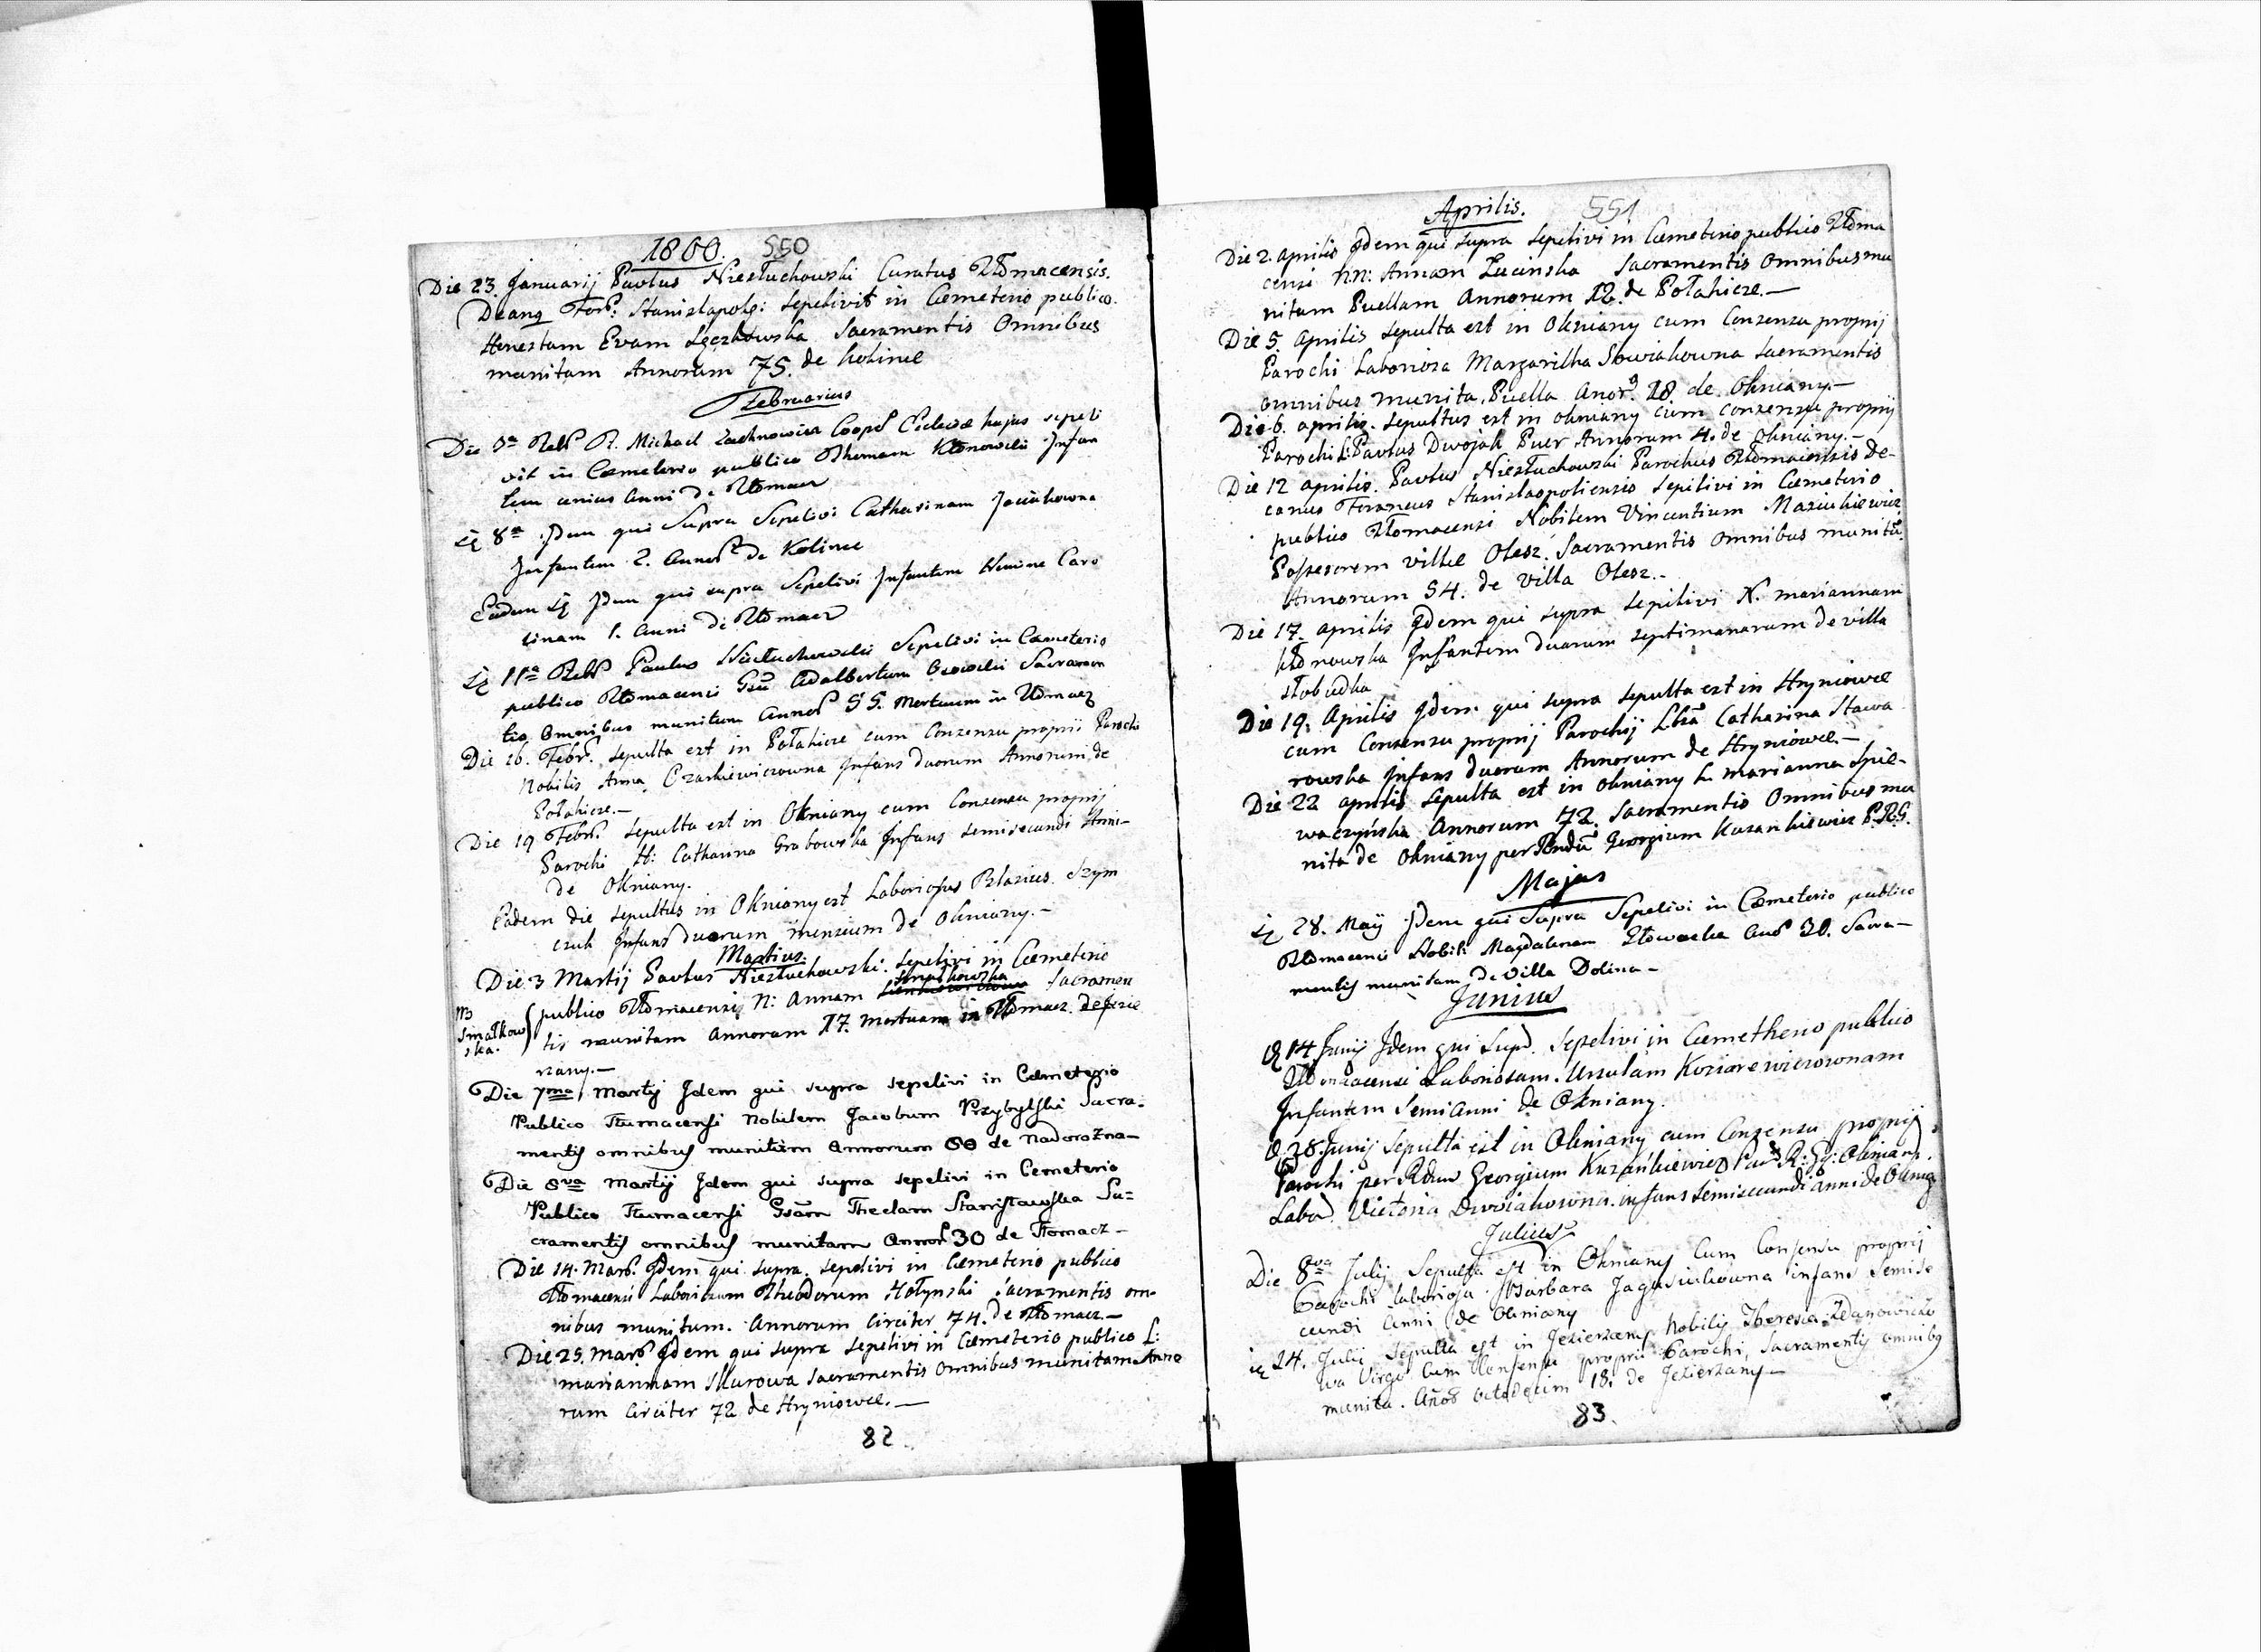 1800. 550
Die 23. Januarij Pavlus Niesłuchowski Curatus Tłomacensis.
Decanq For: Stanislapolz: sepelivit in Cæmeterio publico.
Honestam Evam Łęczkowska Sacramentis Omnibus
munitam Annorum 75. de Kolince
Februarius
Die 3a Feb R. Michael Coop Ecclesiæ hujus sepeli
vit in Cæmeterio publico Thomam Kłonowski Infan
tem unius Anni de Tłomacz
8a Idem qui Supra Sepelivi Catharinam Jaciukowna
Infantem 2. Annor de Kolince
Eadem Idem qui supra Sepelivi Infantem Nomine Caro
linam 1. Anni de Tłomacz
11a Feb Paulus Niesłuchowski Sepelivi in Cæmeterio
publico Tłomacensi Adalbertum Osowski Sacramen
tis Omnibus munitum Annor 55. Mortuum in Tłomacz
Die 16. Febr. sepulta est in Pałahicze cum Consensu proprii Parochi
Nobilis Anna Czarkiewiczowna Infans duorum Annorum de
Pałahicze.—
Die 19 Febr. sepulta est in Okniany cum Consensu proprij
Parochi H: Catharina Grabowska Infans semisecundi Anni-
de Okniany.
Eadem die sepultus in Okniany est Laboriosus Blasius Szym
czuk Infans duorum mensium de Okniany.—
Martius.
Die 3 Martij Pavlus Niesłuchowski. sepelivi in Cæmeterio
publico Tłomacensi N: Annam Smutkowska Sacramen
Smałkow
ska.
tis munitam Annorum 17. Mortuam in Tłomacz. de Jezie
rzany.—
Die 7ma Martij Idem qui supra sepelivi in Cæmeterio
Publico Tłumacensi Nobilem Jacobum Przybylski Sacra-
mentis omnibus munitum Annorum 60 de Nadorożna—
Die 8va Martij Idem qui supra sepelivi in Cemeterio
Publico Tłumacensi Gsam Theclam Stanisławska Sa=
cramentis omnibus munitam Annor 30 de Tłomacz—
Die 14. Mars. Idem qui supra. sepelivi in Cæmeterio publico
Tłomacensi Laboriosum Theodorum Hołynski Sacramentis om-
nibus munitum. Annorum Circiter 74. de Tłomacz—
Die 25. Mars Idem qui supra sepelivi in Cæmeterio publico L:
mariannam Skurowa Sacramentis Omnibus munitam Anno
rum Circiter 72 de Hryniowce.—
82
Aprilis. 551
Die 2. Aprilis Idem qui supra sepelivi in Cæmeterio publico Tłoma
censi nn: Annam Łucinska Sacramentis Omnibus mu
nitam Puellam Annorum 12. de Pałahicze.—
Die 5. Aprilis sepulta est in Okniany cum Consensu proprij
Parochi Laboriosa Margaritha Sowiakowna Sacramentis
omnibus munita, Puella Anor. 18. de Okniany.—
Die 6. aprilis. sepultus est in Okniany cum consensu proprij
Parochi L: Pavlus Dwojak Puer Annorum 4. de Okniany.—
Die 12 aprilis. Pavlus Niesłuchowski Parochus Tłomacensis De-
canus Foraneus Stanislaopoliensis Sepelivi in Cæmeterio
publico Tłomacensi Nobilem Vincentium Maziukiewicz
Possesorem villæ Olesz. Sacramentis Omnibus munitu.
Annorum 54. de Villa Olesz.—
Die 17. aprilis Idem qui supra sepelivi N. mariannam
Kłonowska Infantem duarum septimanarum de villa
słobudka
Die 19. Aprilis Idem qui supra sepulta est in Hryniowce
cum Consensu proprij Parochij Lbsa Catharina Stawa
rowska Infans duorum Annorum de Hryniowce.—
Die 22 aprilis sepulta est in Okniany L. Marianna Spie-
waczyńska Annorum 72. Sacramentis Omnibus mu
nita de Okniany per Rndu Georgium Kuzankiewicz P.R.G.
Majus
28. Maij Idem qui Supra Sepelivi in Cæmeterio publico
Tłomacensi Nobile Magdalenam Anor 30. Sacra—
mentis munitam de Villa Dolina—
Junius
14 Junij Idem qui Supra. Sepelivi in Cæmetherio publico
Laboriosam. Ursulam
Infantem Semi Anni de Okniany.
28. Junij sepulta est in Okniany cum Consensu proprij
Parochi per Rdum Georgium Kuzańkiewicz
Labor. Victoria Dwoiakowna. infans Semisecundi anni de Okniany
Julius
Die 8va Julij Sepulta est in Okniany Cum Consensu proprij
Parochi laboriosa. Barbara Jagusiukówna infans Semise
cundi Anni de Okniany
24. Julij Sepulta est in Jezierzany Nobilis Theresia Zdanowiczo
wa Virgo Cum Consensu proprii Parochi, Sacramentis omnibq
munita. Años octodecim 18. de Jezierzany—
83.